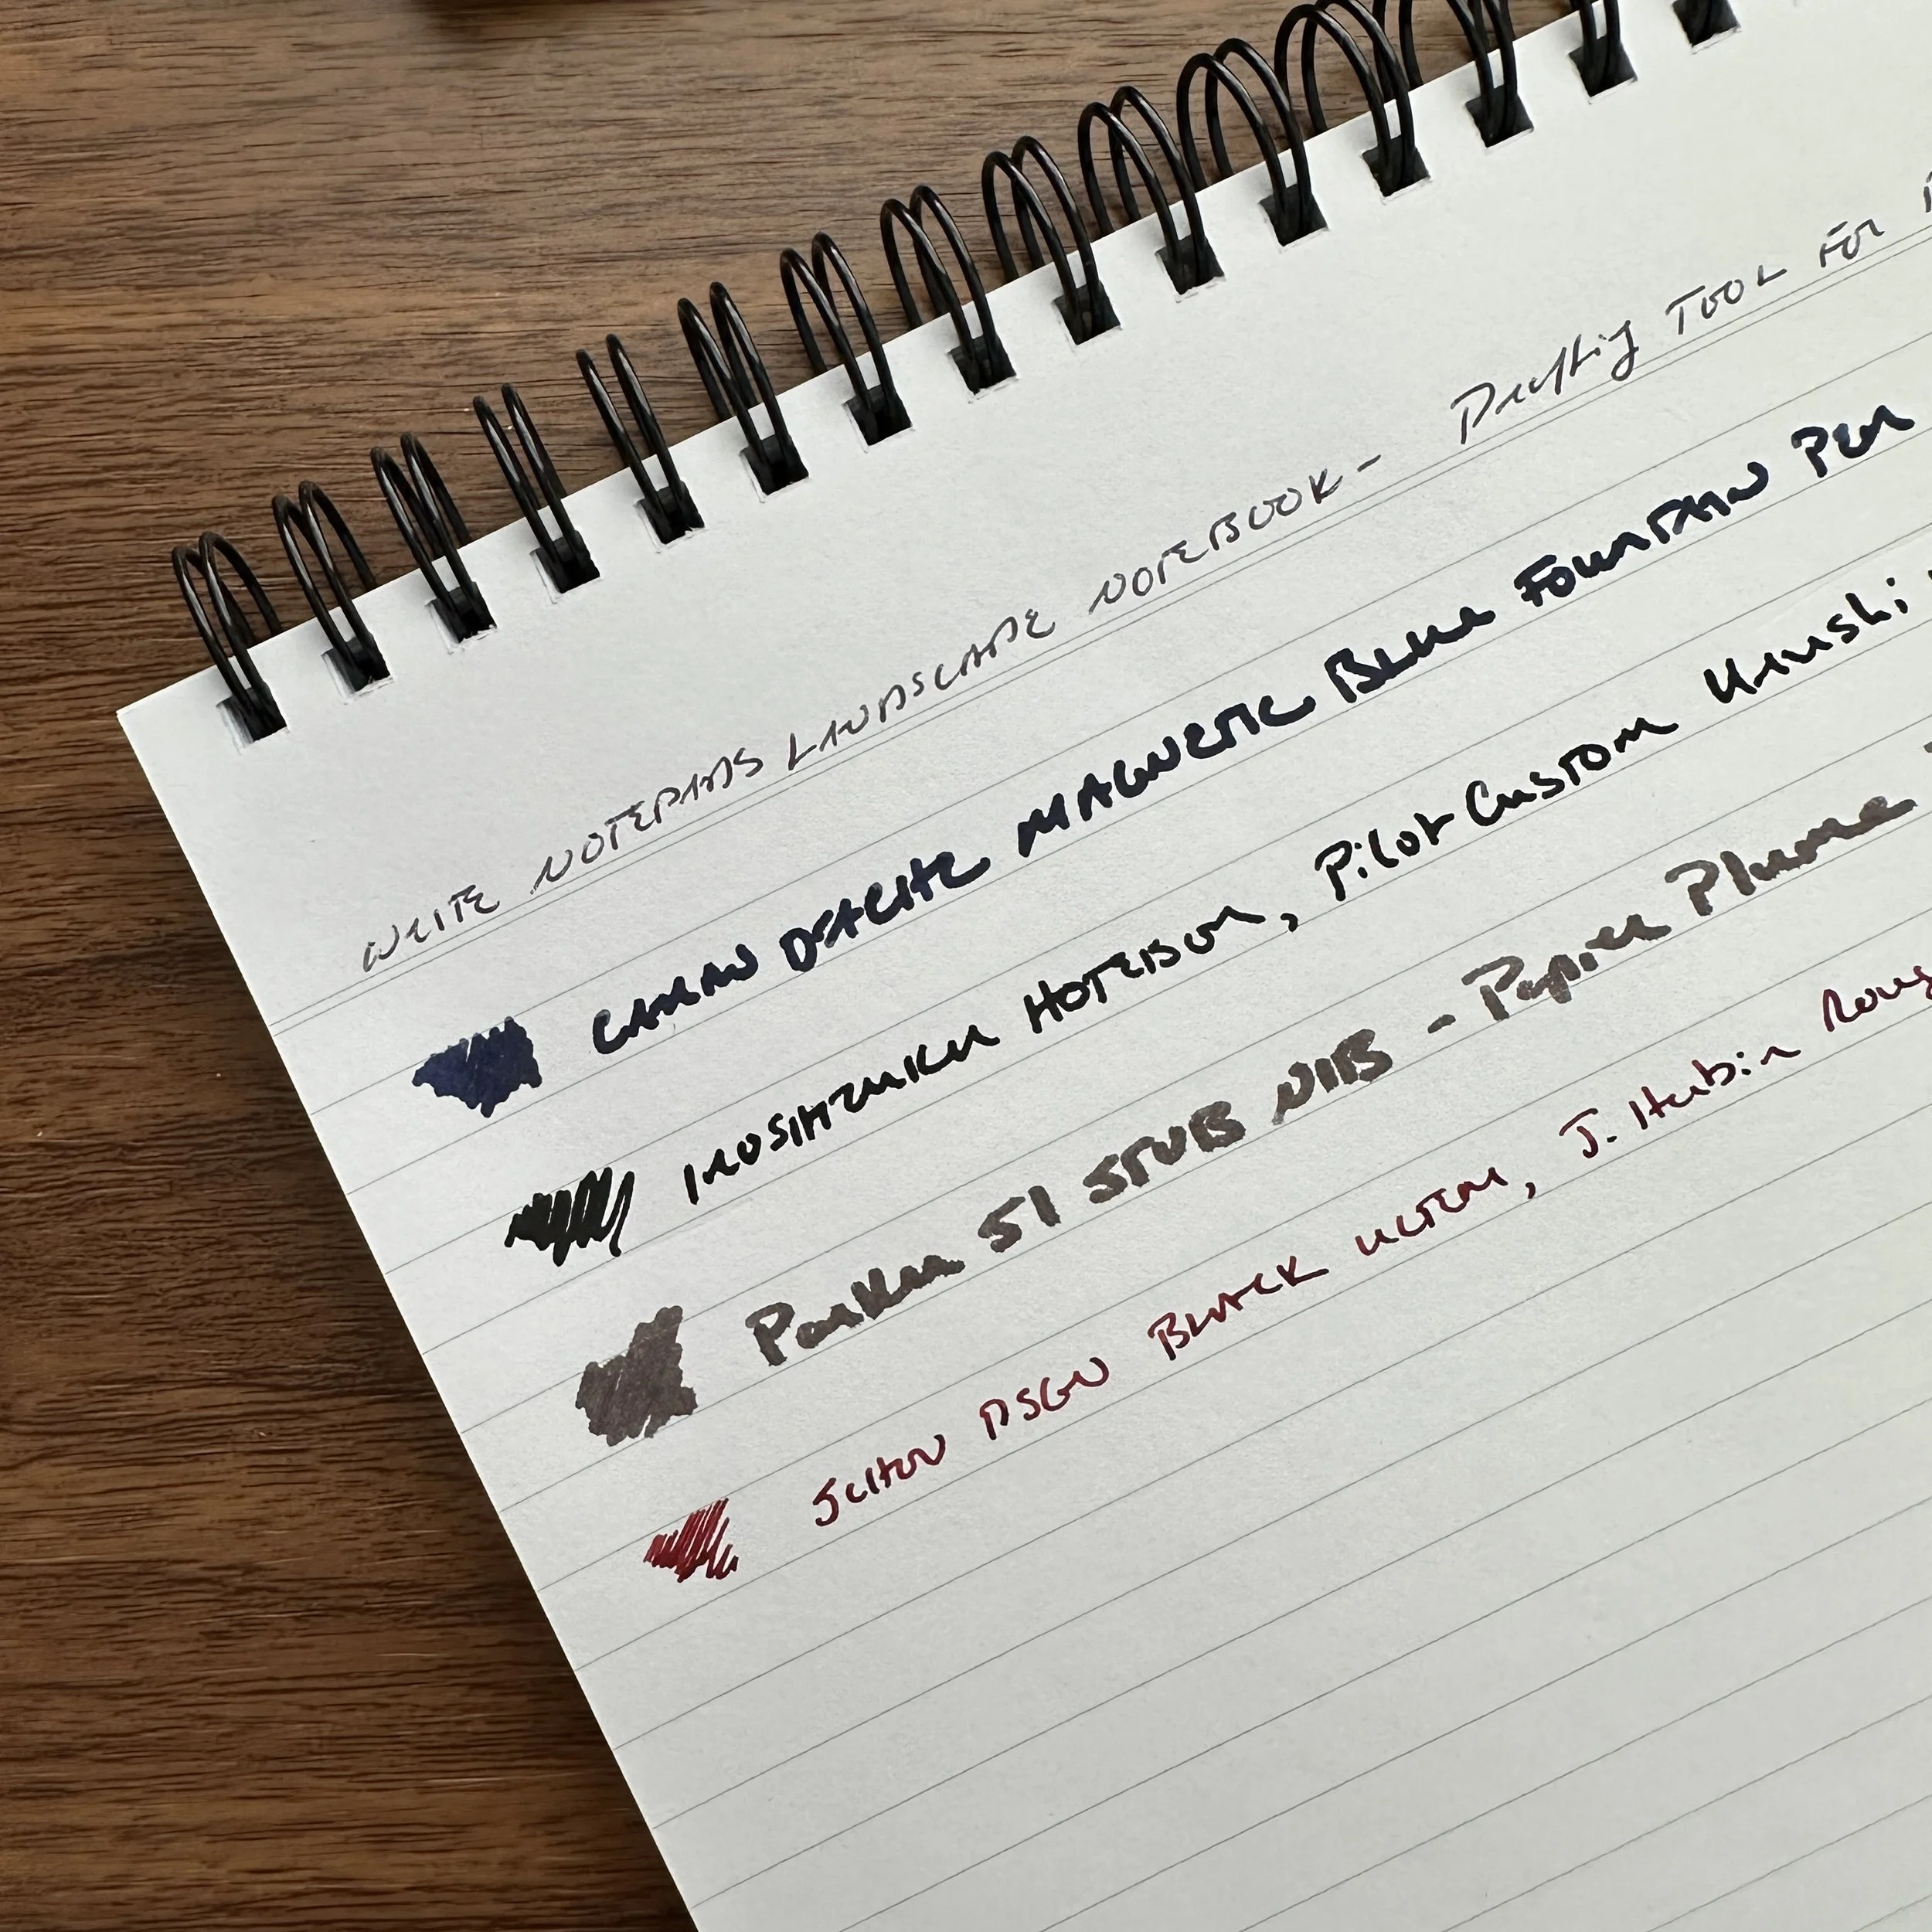 WRITE NOTEPADS LANDSCAPE NOTEBOOK - Drafting TOOL FOR
CARAN D'ACHE MAGNETIC BLUE FOUNTAIN PEN
IROSHIZUKU HOTEISON, Pilot Custom Urushi
Parker 51 STUB NIB - Papier Plume
SCHON DSGN BLACK ULTEM, J. Herbin Roug